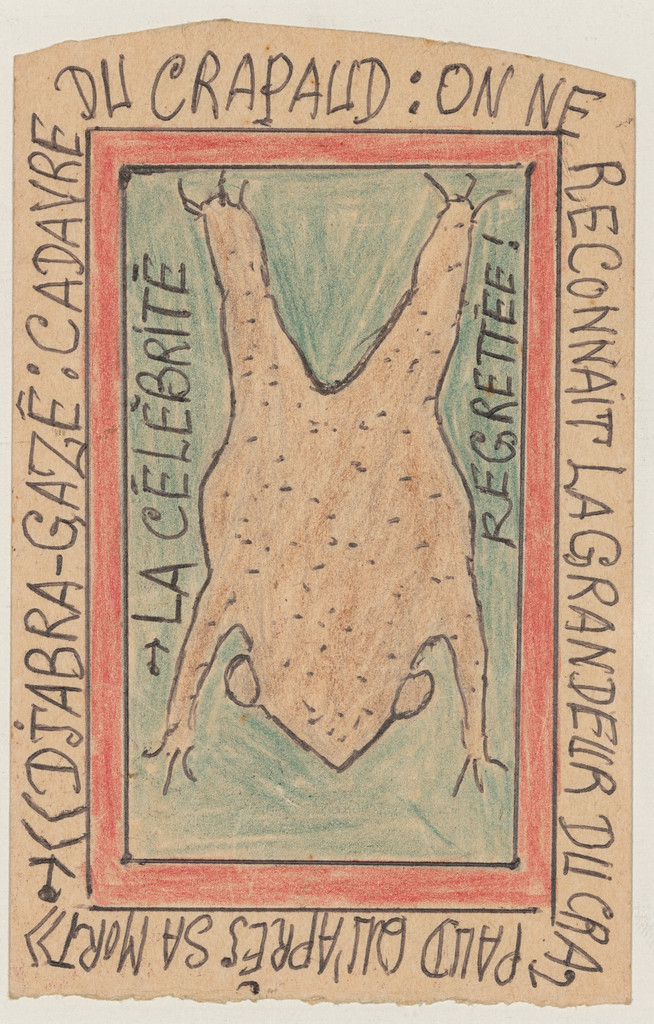 →«DJTABRA-GAZÊ: CADAVRE
DU CRAPAUD: ON NE
RECONNAIT LA GRANDEUR DU CRA-
PAUD QU'APRÈS SA MORT»
→ LA CÉLÉBRITÉ
REGRETTÉE!